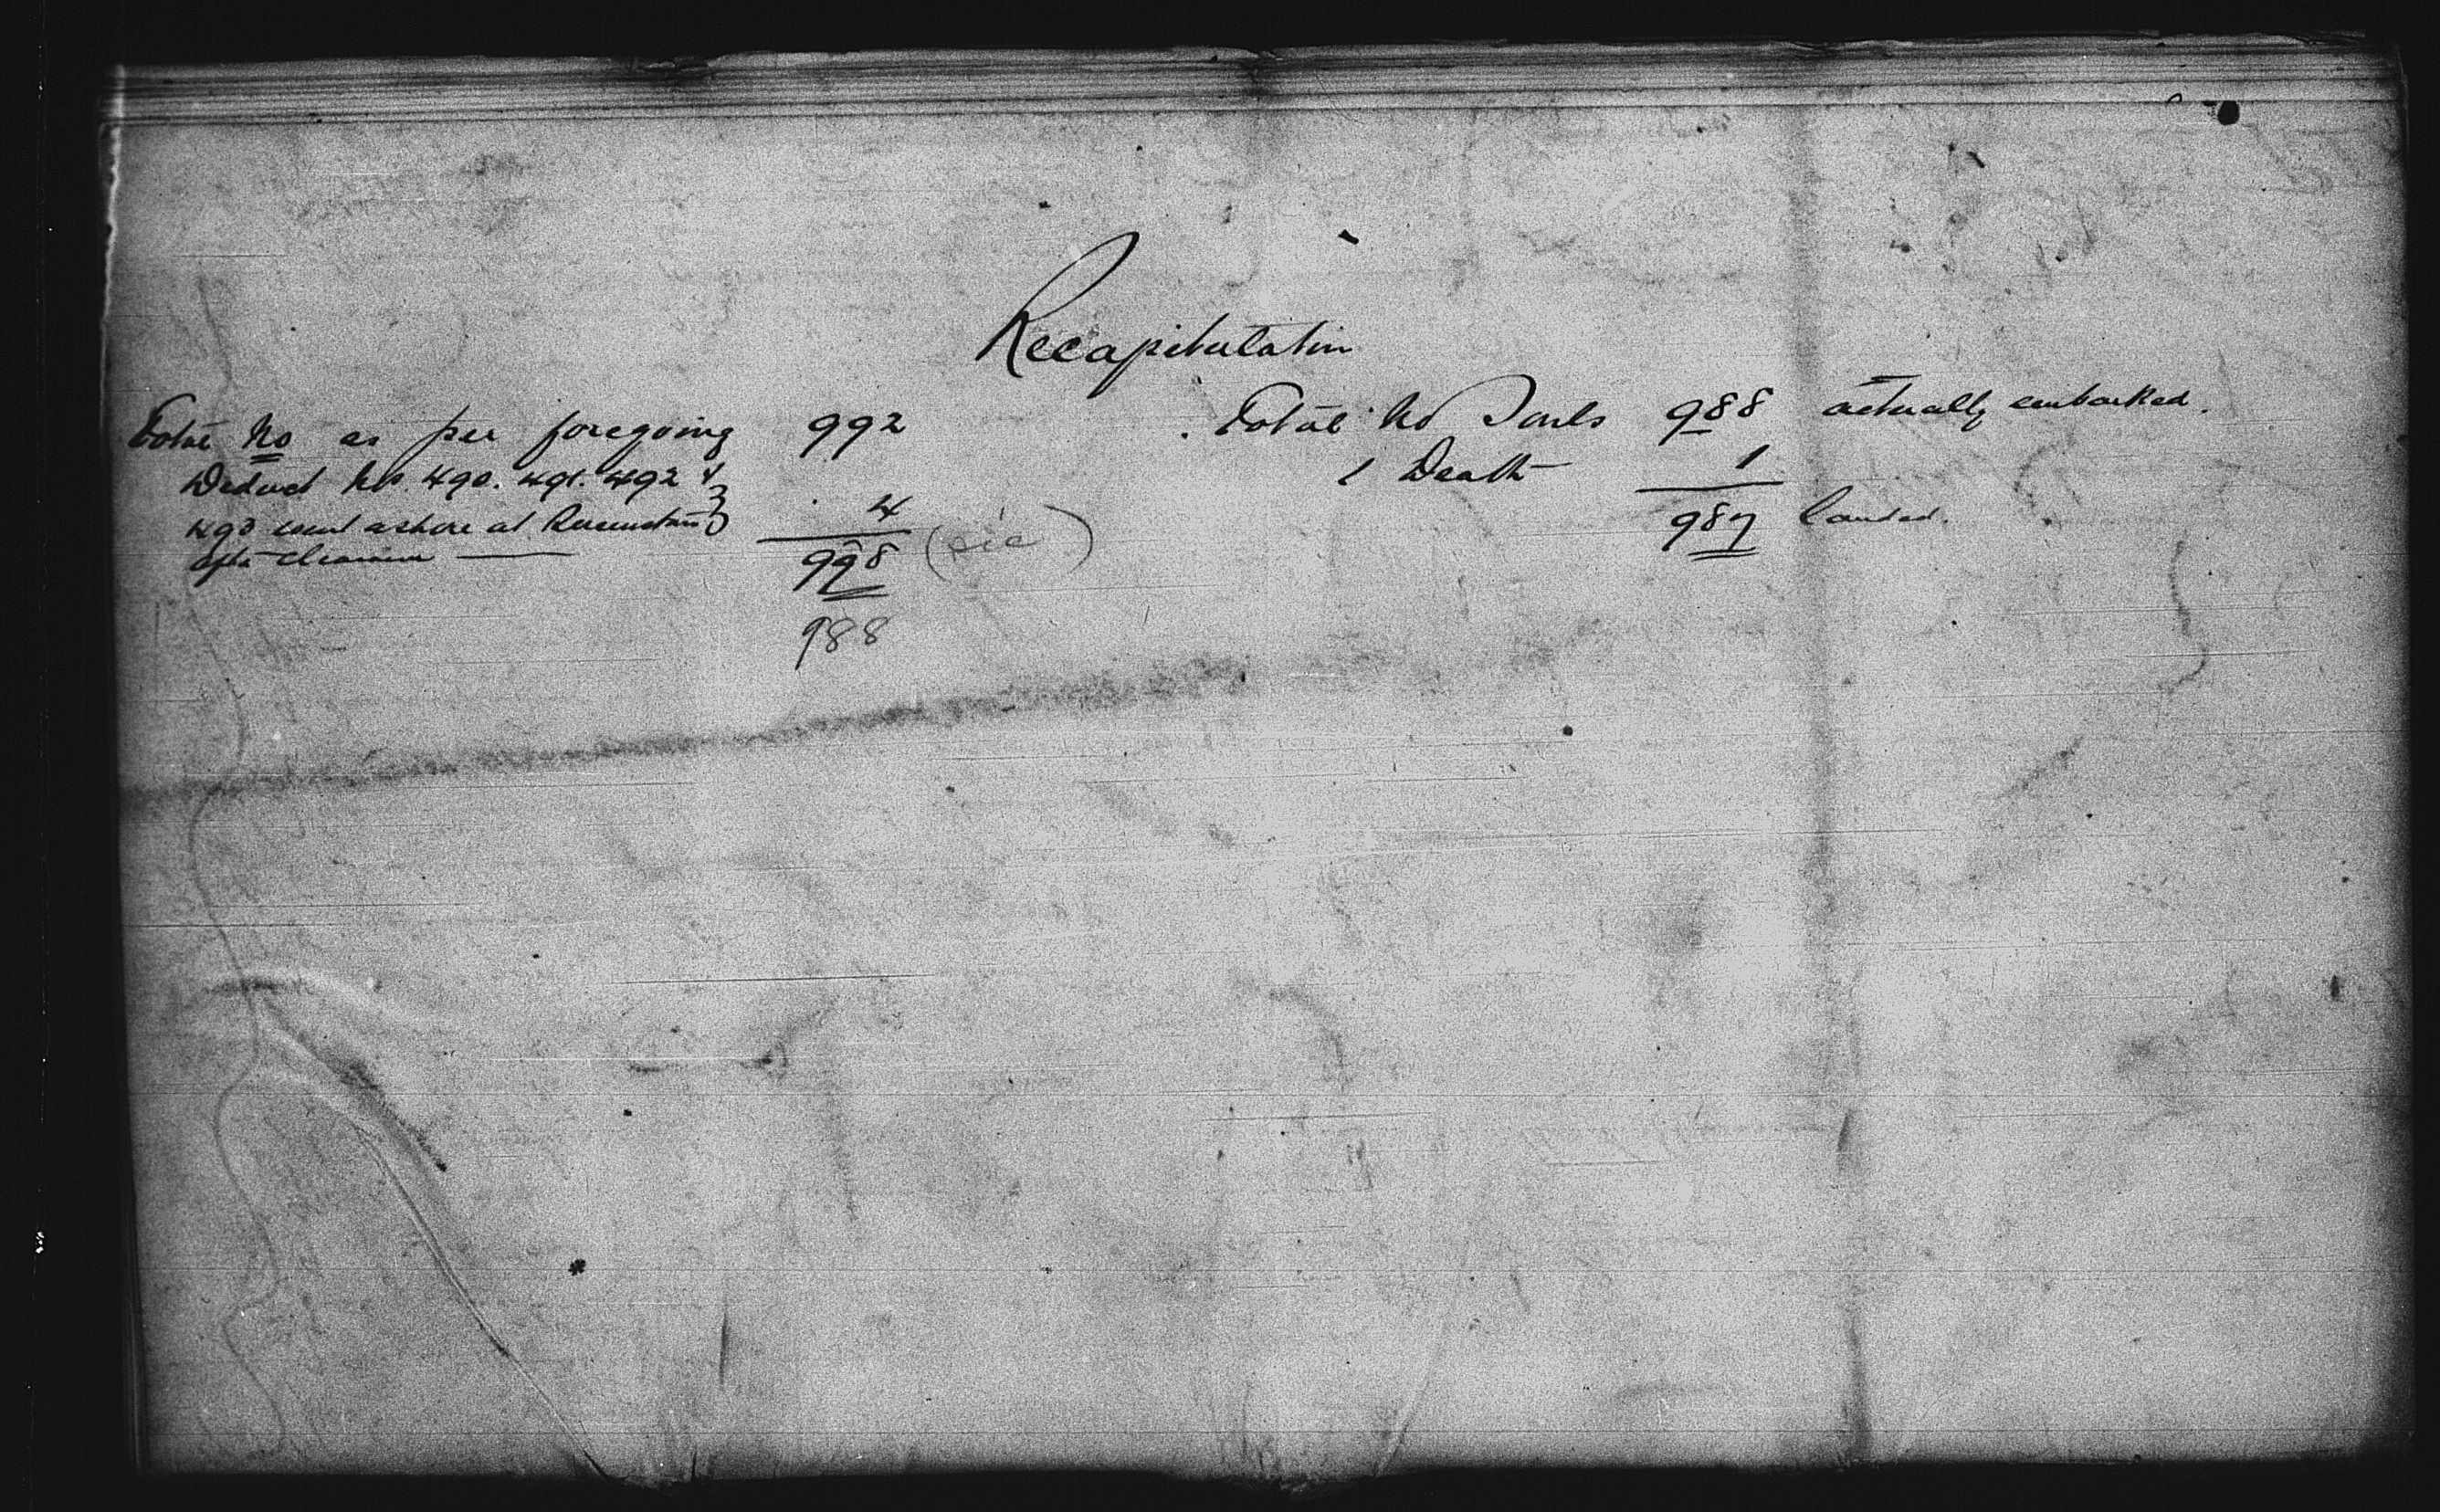 Recapitulation
Total No as per foregoing 992
Deduct Nos. 490. 491. 492 &
493 went ashore at Queenstown 4
after clearance
998 (sic)
988
Total No Souls 988 actually embarked.
1 Death 1
987 landed.